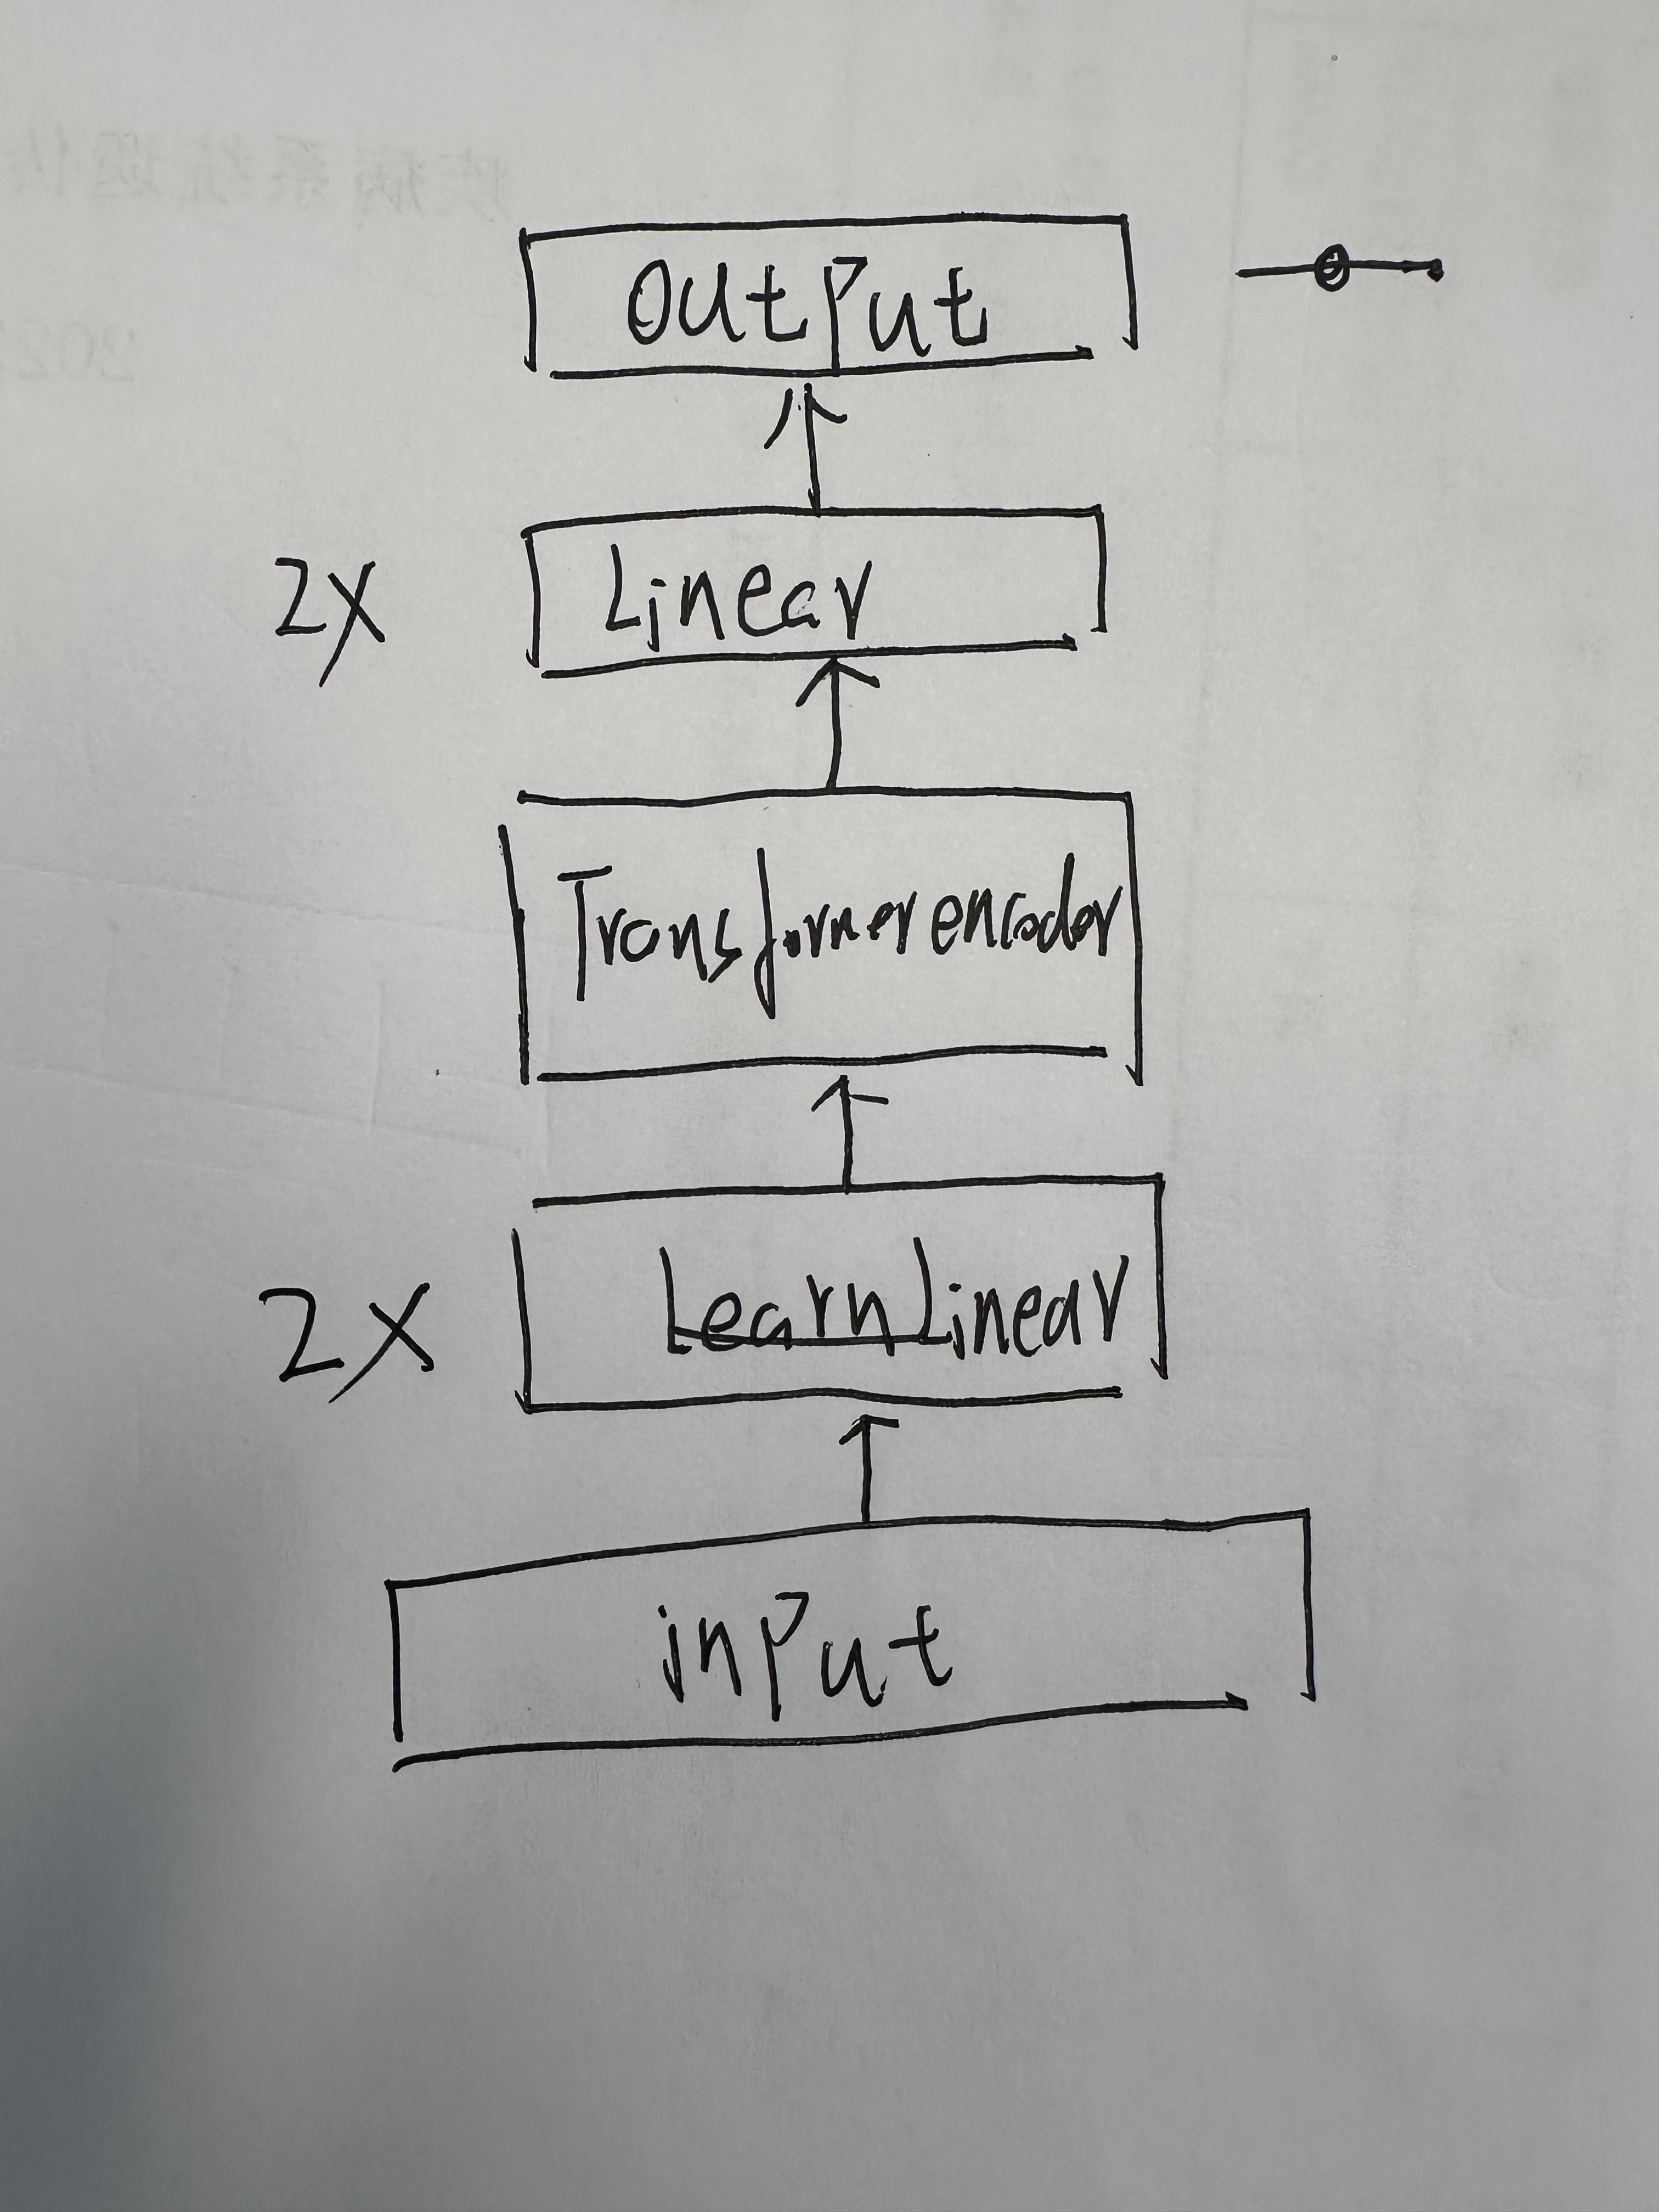 output
2X Linear
Transformer encoder
2X Learn Linear
input